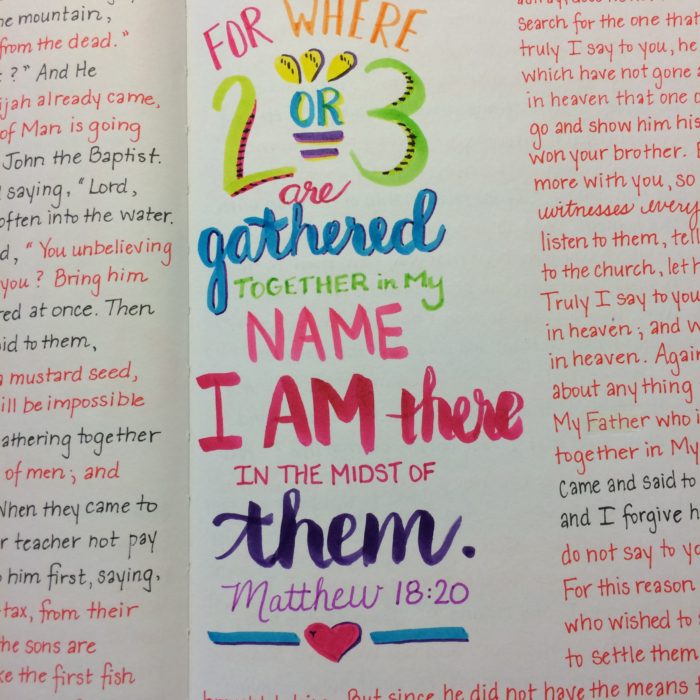 he mountain,
from the dead."
?" And He
ijah already came,
of Man is going
John the Baptist.
saying, "Lord,
often into the water.
d, "You unbelieving
you? Bring him
red at once. Then
id to them,
a mustard seed,
ill be impossible
athering together
of men; and
When they came to
r teacher not pay
him first, saying,
-tax, from their
the sons are
ke the first fish
FOR WHERE
2 OR 3
are
gathered
TOGETHER in My
NAME
I AM there
IN THE MIDST OF
them.
Matthew 18:20
search for the one that
truly I say to you, he
which have not gone a
in heaven that one o
go and show him his
won your brother. B
more with you, so
witnesses every
listen to them, tell
to the church, let h
Truly I say to you
in heaven; and w
in heaven. Again
about anything
My Father who i
together in My
came and said to
and I forgive h
do not say to yo
For this reason
who wished to s
to settle them
But since he did not have the means